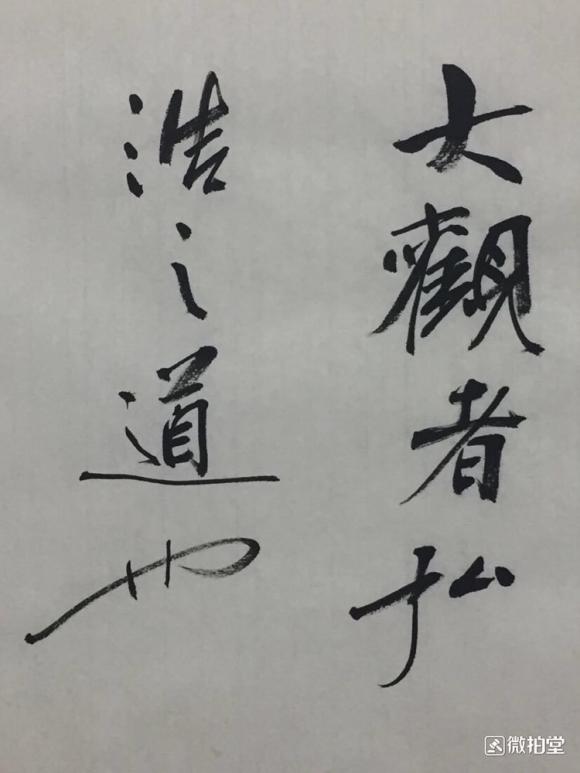 大觀者弘
浩之道也
微拍堂